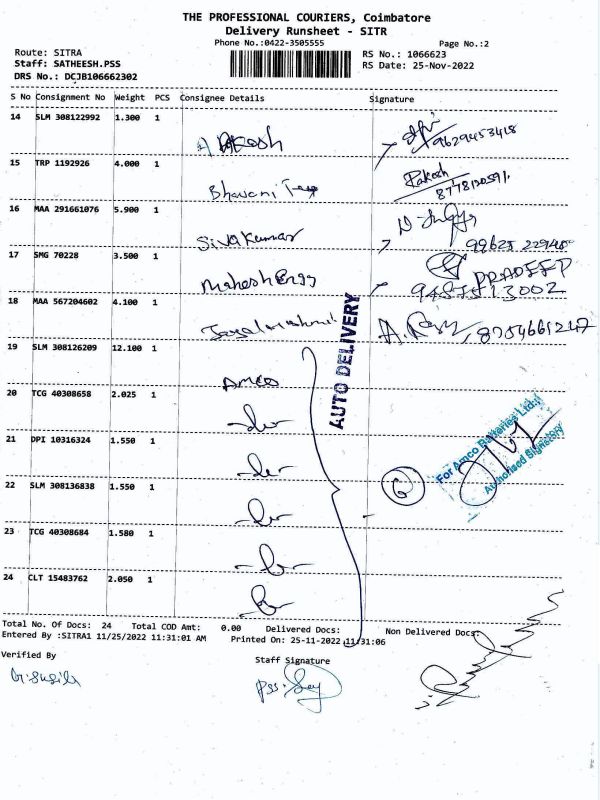 THE PROFESSIONAL COURIERS, Coimbatore
Delivery Runsheet - SITR
Phone No.:0422-3505555
Page No.:2
Route: SITRA
RS No.: 1066623
Staff: SATHEESH.PSS
RS Date: 25-Nov-2022
DRS No.: DCJB106662302
S No Consignment No Weight PCS Consignee Details Signature
14 SLM 308122992 1.300 1
9629453418
15 TRP 1192926 4.000 1
Rakesh
Bhavani
16 MAA 291661076 5.900 1
Siva Kumar
17 SMG 70228 3.500 1
Mahesh Engg
18 MAA 567204602 4.100 1
8754661247
AUTO DELIVERY
19 SLM 308126209 12.100 1
Amco
20 TCG 40308658 2.025 1
-do-
For Amco Batteries Ltd.,
Authorised Signatory
21 DPI 10316324 1.550 1
-do-
22 SLM 308136838 1.550 1
-do-
6
23 TCG 40308684 1.580 1
-do-
24 CLT 15483762 2.050 1
Total No. Of Docs: 24 Total COD Amt: 0.00 Delivered Docs: Non Delivered Docs:
Entered By :SITRA1 11/25/2022 11:31:01 AM Printed On: 25-11-2022 11:31:06
Verified By
Staff Signature